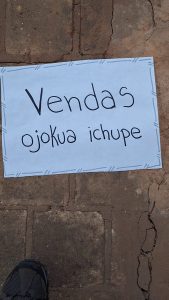 Vendas
ojokua ichupe